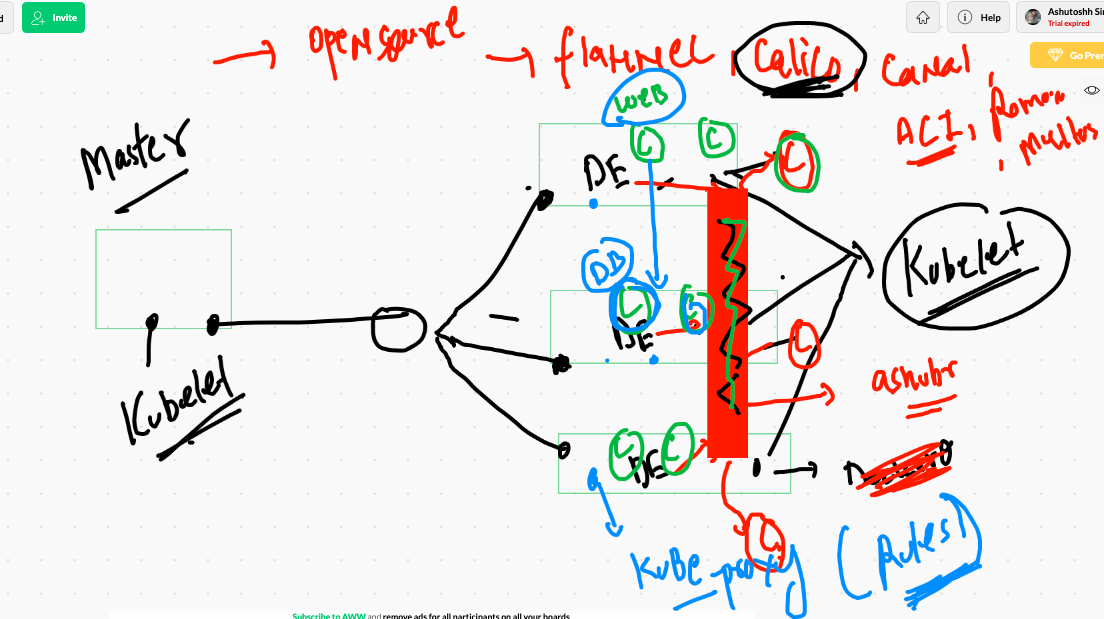 Invite
Help
Ashutoshh Sin
Trial expired
Go Prem
→ openSource → flannel, Calico, Canal,
ACI,
WEB
Master
C C
DE
C
Kubelet
DB
C
DE
C
Kubelet
ashubr
C C
DE
C
Kube-proxy (Rules)
Subscribe to AWW and remove ads for all participants on all your boards